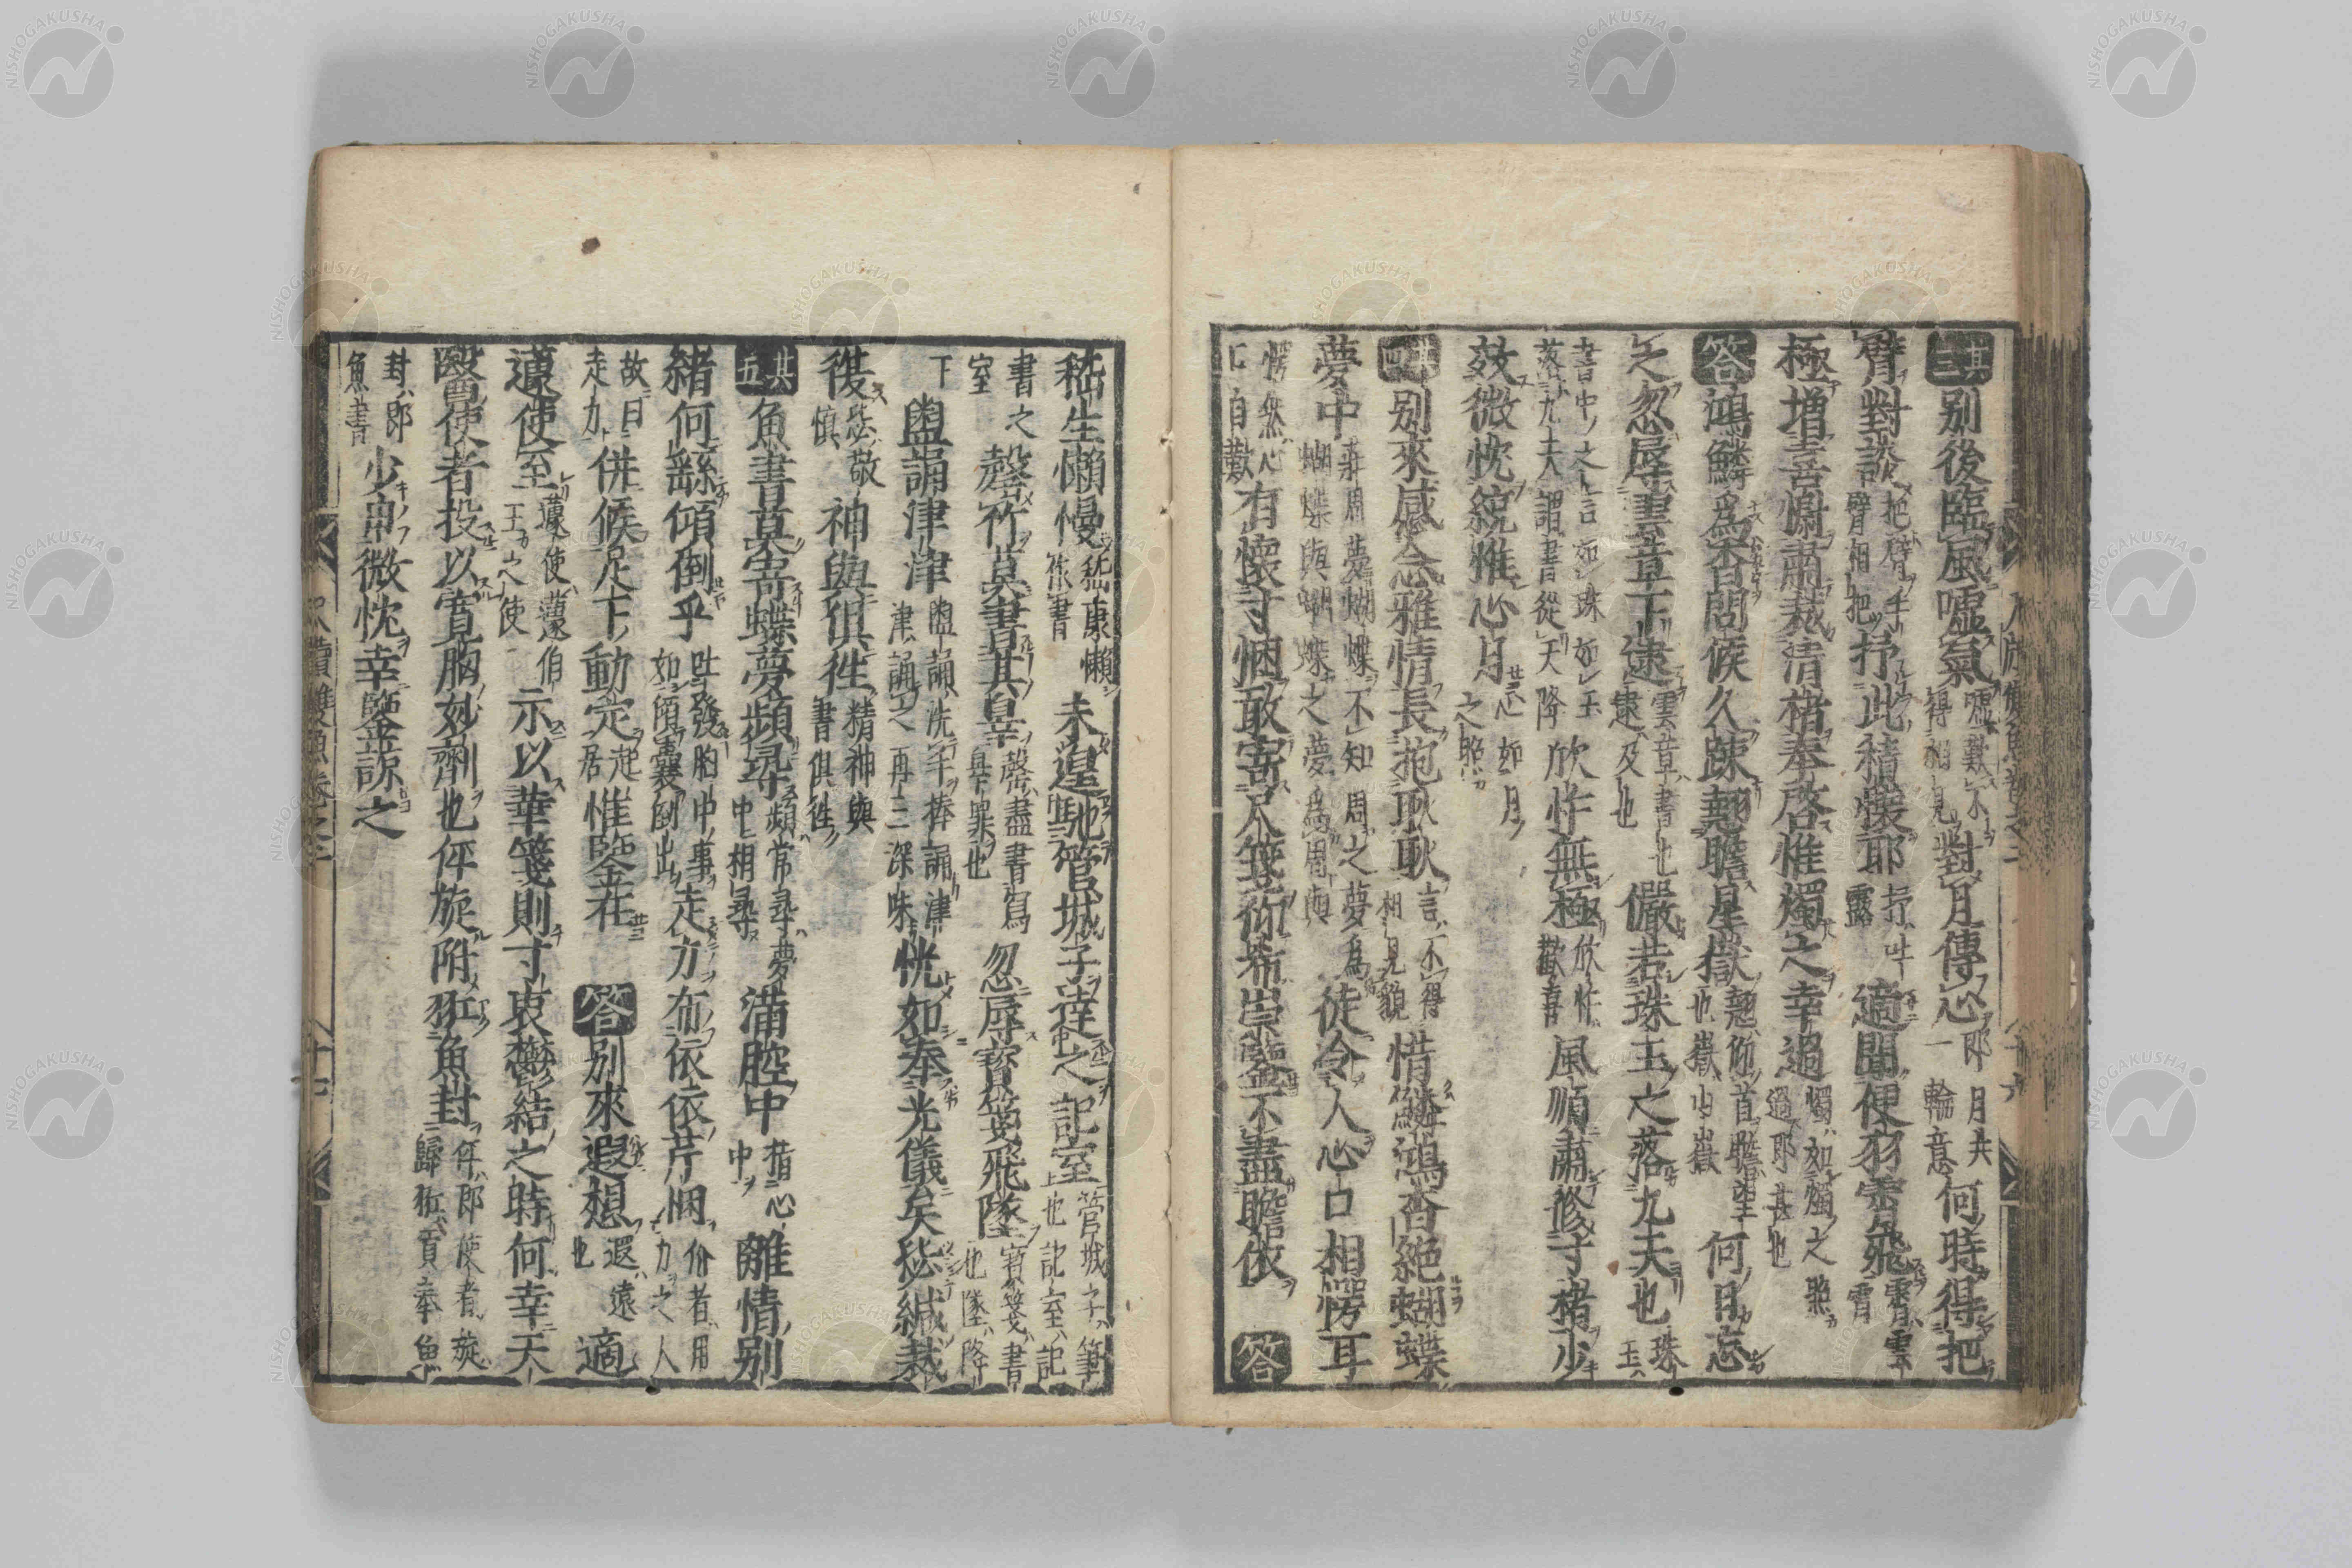 其三 別後臨風噓氣 噓歎不得相見 對月傳心 即月共一輪意 何時得把
臂對談 把臂手臂相把 抒此積懷耶 抒吐露 適聞便羽雲飛 霄雲霄
極增喜慰肅裁清楮奉啓惟燭之幸過 燭如燭之照過即甚也
答 鴻鱗爲杳問候久踈翹瞻星嶽 翹仰首瞻望也嶽山嶽 何日忘
之忽辱雲章下逮 雲章書也逮及也 儼若珠玉之落九天也 珠玉
書中之言如珠如玉落九天謂書從天降 欣忭無極 欣忭歡喜 風順肅修寸楮少
效微忱統惟心月 心如月之照
其四 別來感念雅情長抱耿耿 言不得相見貌 惜鱗鴻杳絕蝴蝶
夢中 莊周夢蝴蝶不知周之夢為蝴蝶與蝴蝶之夢爲周與 徒令人心口相愕耳
愕然心口自歎 有懷寸悃敢寄尺箋仰希崇鑒不盡瞻依 答
嵇生懶慢 嵇康懶 未遑馳管城子達之記室 管城子筆也記室記
書之室 罄竹莫書其辠 罄盡書寫辠罪也 忽辱寶箋飛墜 寶箋書也墜降
下 盥誦津津 盥誦洗手捧誦津津誦之再三深味 恍如奉光儀矣毖緘裁
復 毖敬慎 神與俱徃 精神與書俱徃
其五 魚書莫寄蝶夢頻尋 頻常尋夢中相尋 滿腔中 指心中 離情別
緒何繇傾倒乎 吐發胸中事如傾囊倒出 走力布依依芹悃 力之人
故曰走力 併候足下動定 起居 惟鑒在 答 別來遐想 遐遠也 適
遽使至 示以華箋則寸衷鬱結之時何幸天
醫使者投以寬胸妙劑也伻旋附 魚封 伻即使者旋歸
封即魚書 少帛微忱幸鑒諒之